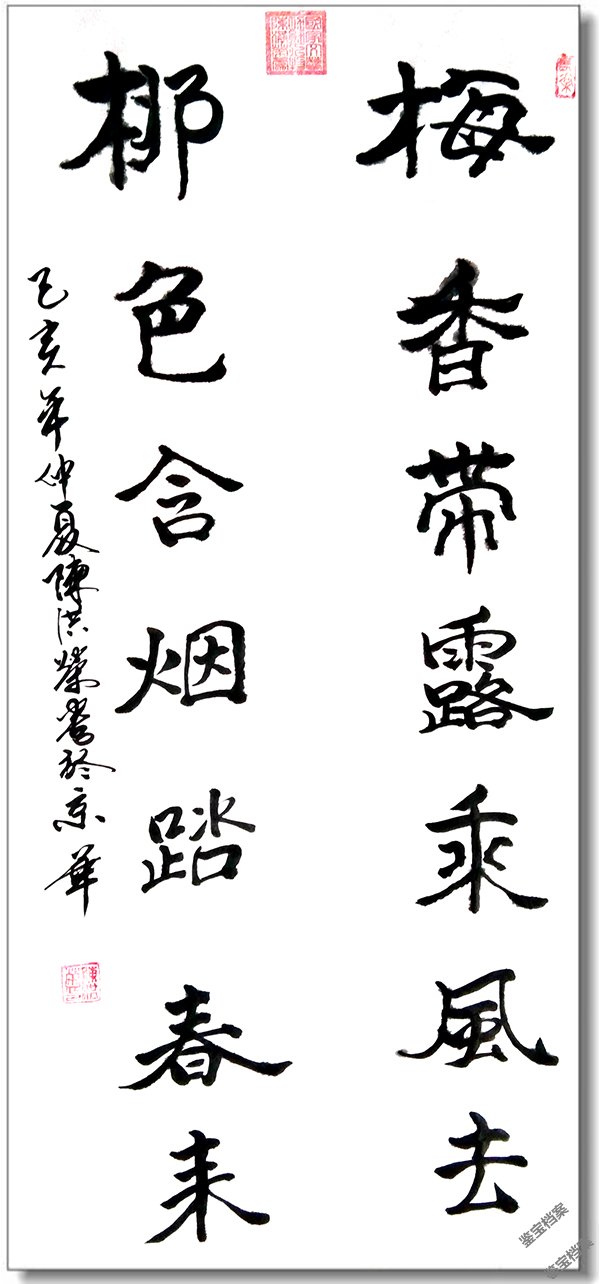 梅香带露乘風去
柳色含烟踏春来
己亥年仲夏陳洪榮書於京華
鉴宝档案
鉴宝档案